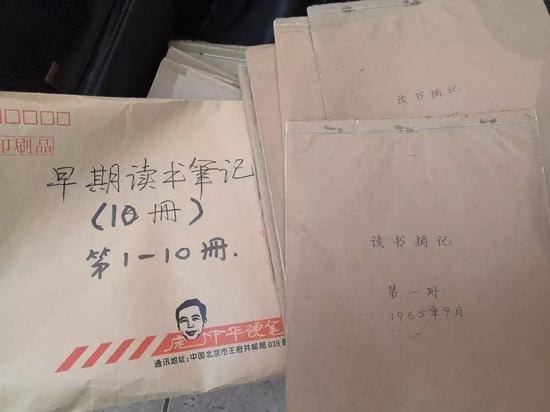 印刷品
早期读书筆记
(10册)
第1-10册.
中华硬笔
通讯地址:中国北京市王府井邮局039
读书摘记
读书摘记
第一册
1965年9月